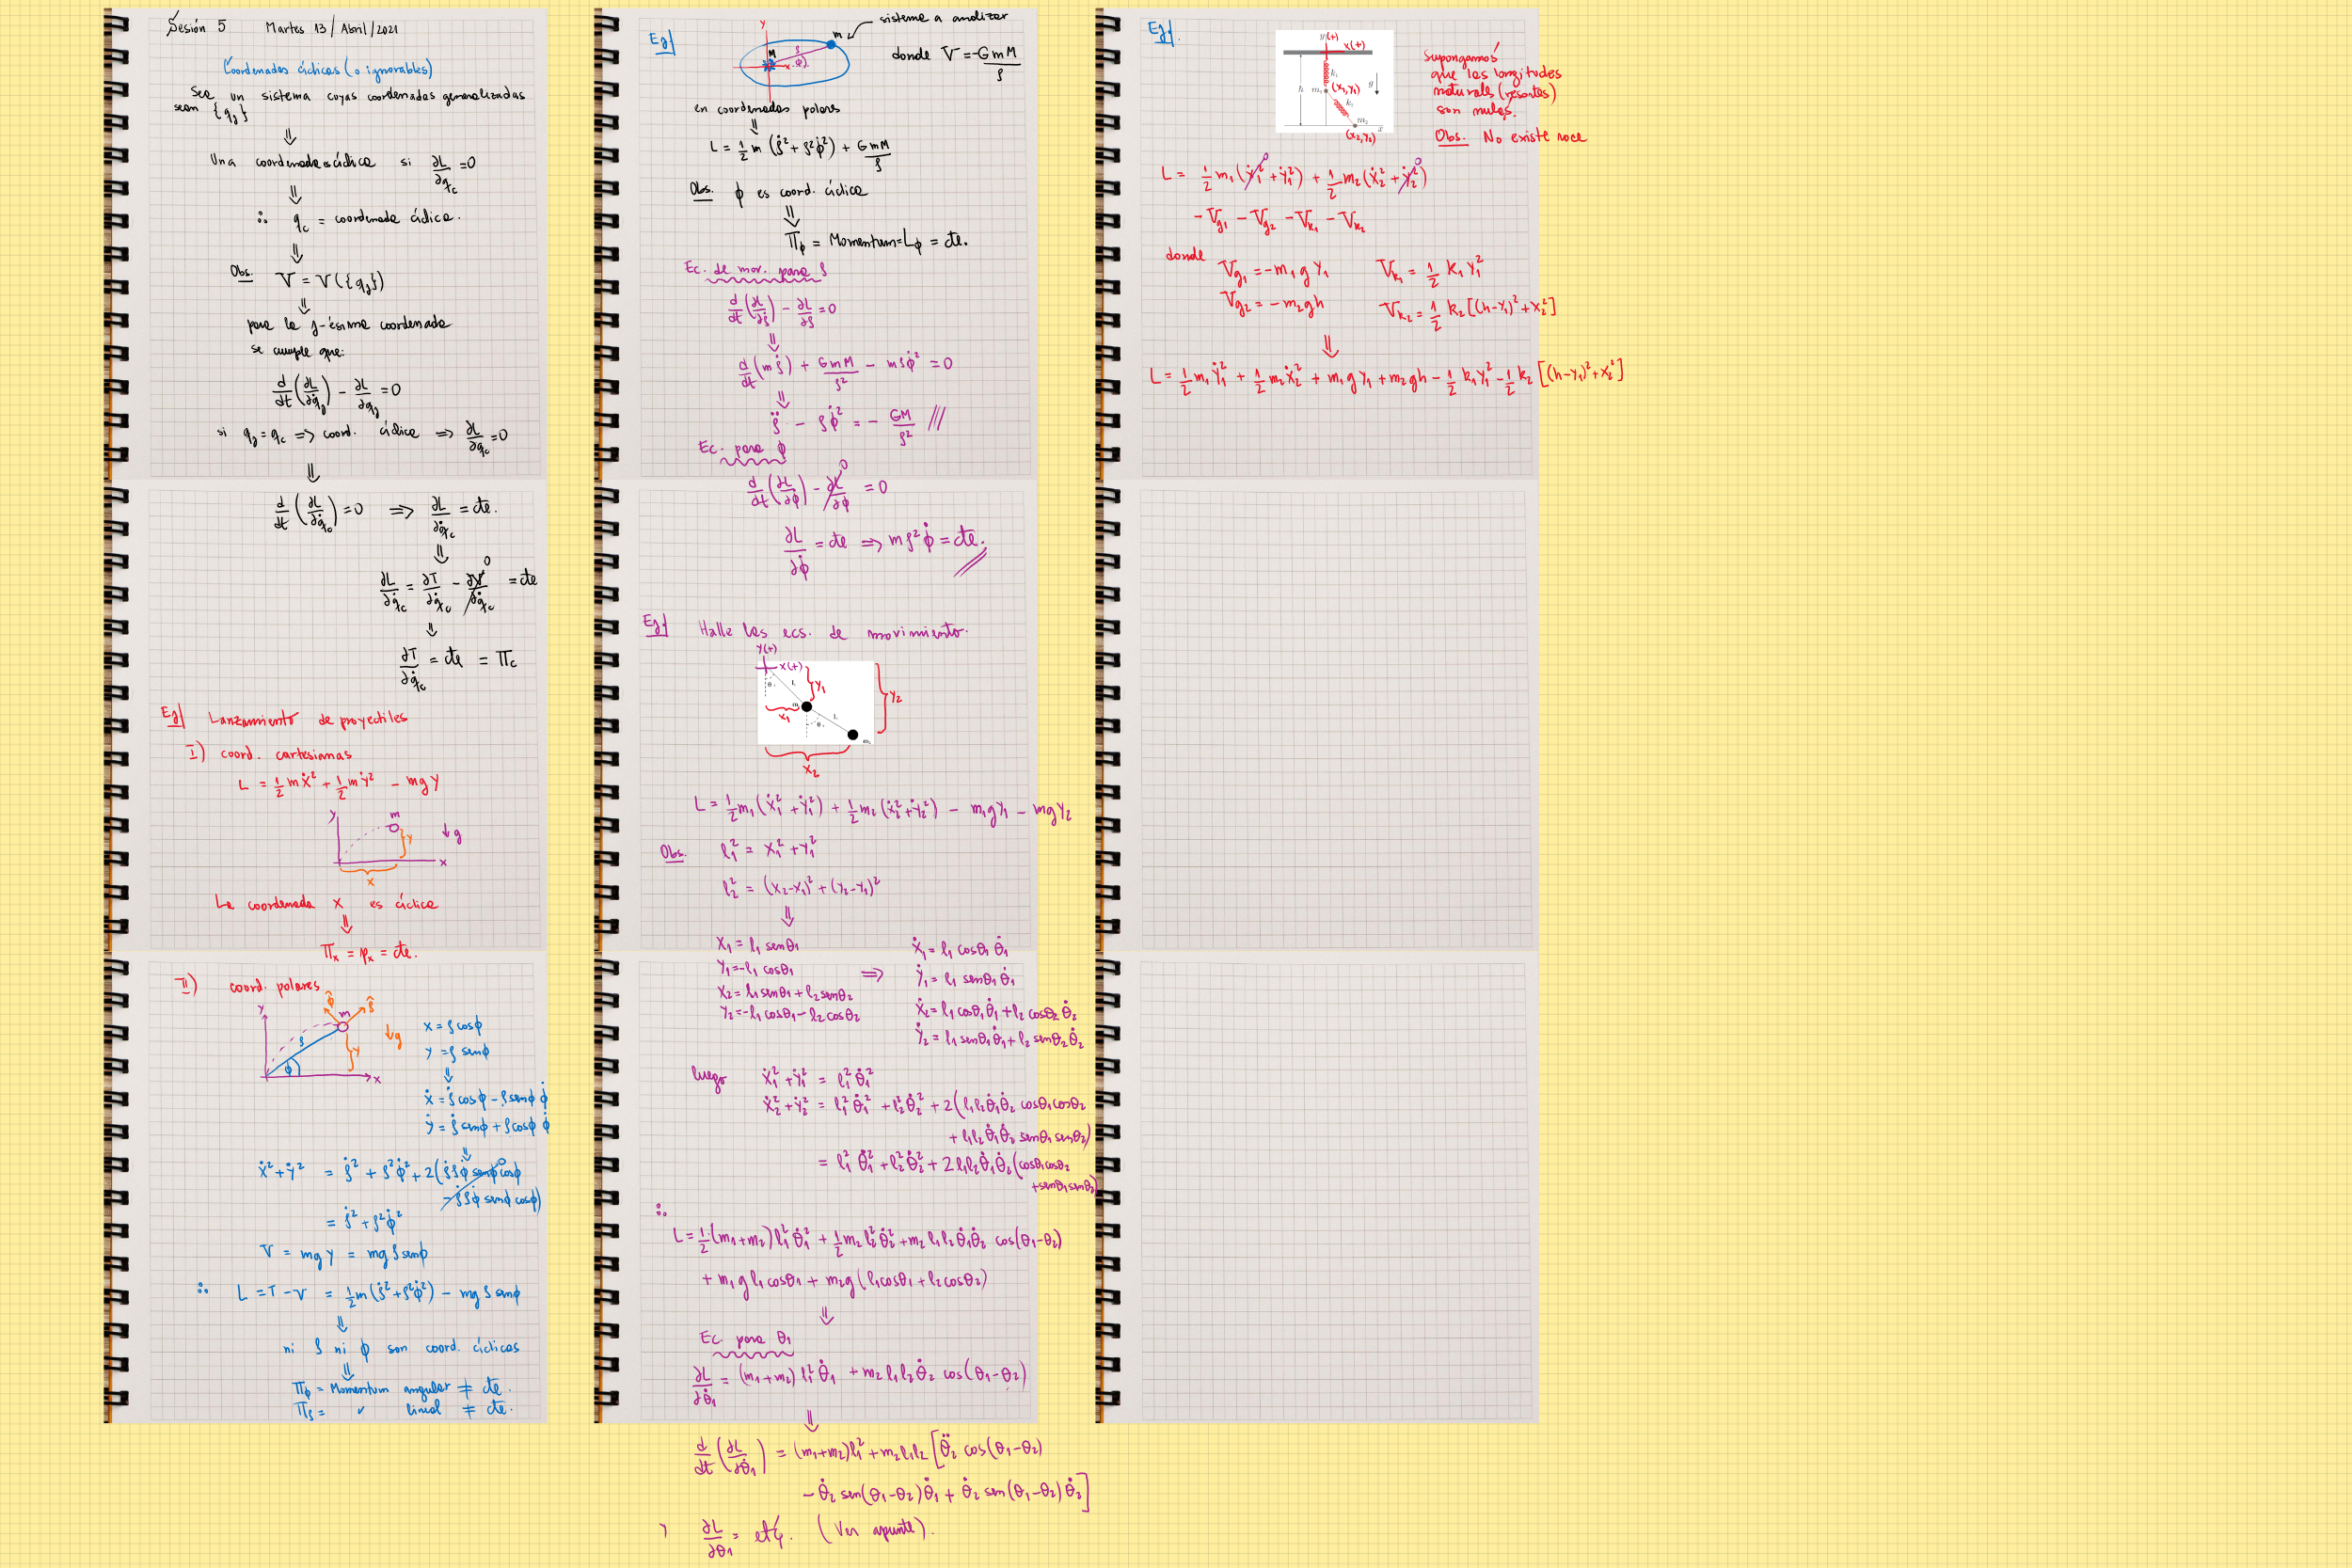 Sesión 5 Martes 13/Abril/2021
Coordenadas cíclicas (o ignorables)
Sea un sistema cuyas coordenadas generalizadas
sean {q_j}
⇓
Una coordenada es cíclica si ∂L/∂q_c = 0
⇓
∴ q_c = coordenada cíclica.
⇓
Obs. V = V({q_j})
⇓
para la j-ésima coordenada
se cumple que:
d/dt (∂L/∂q̇_j) - ∂L/∂q_j = 0
si q_j = q_c ⇒ coord. cíclica ⇒ ∂L/∂q_c = 0
⇓
d/dt (∂L/∂q̇_c) = 0 ⇒ ∂L/∂q̇_c = cte.
⇓
∂L/∂q̇_c = ∂T/∂q̇_c - ∂V/∂q̇_c 0 = cte
⇓
∂T/∂q̇_c = cte = Π_c
Ej| Lanzamiento de proyectiles
I) coord. cartesianas
L = 1/2 mẋ² + 1/2 mẏ² - mgy
y m y ↓g x
x
La coordenada x es cíclica
⇓
Π_x = p_x = cte.
II) coord. polares
y φ̂ ρ̂ m ρ φ y ↓g x
x = ρcosφ
y = ρ senφ
⇓
ẋ = ρ̇ cosφ - ρ senφ φ̇
ẏ = ρ̇ senφ + ρcosφ φ̇
⇓
ẋ² + ẏ² = ρ̇² + ρ²φ̇² + 2(ρ̇ρφ̇ senφ cosφ 0
- ρ̇ρφ̇ senφ cosφ)
= ρ̇² + ρ²φ̇²
V = mgy = mgρ senφ
∴ L = T - V = 1/2 m(ρ̇² + ρ²φ̇²) - mgρ senφ
⇓
ni ρ ni φ son coord. cíclicas
⇓
Π_φ = Momentum angular ≠ cte.
Π_ρ = " lineal ≠ cte.
Ej|
y M ρ φ x m
sistema a analizar
donde V = -GmM/ρ
en coordenadas polares
⇓
L = 1/2 m (ρ̇² + ρ²φ̇²) + GmM/ρ
Obs. φ es coord. cíclica
⇓
Π_φ = Momentum = L_φ = cte.
Ec. de mov. para ρ
d/dt (∂L/∂ρ̇) - ∂L/∂ρ = 0
⇓
d/dt (mρ̇) + GmM/ρ² - mρφ̇² = 0
⇓
ρ̈ - ρφ̇² = - GM/ρ² ///
Ec. para φ
d/dt (∂L/∂φ̇) - ∂L/∂φ 0 = 0
∂L/∂φ̇ = cte ⇒ mρ²φ̇ = cte. //
Ej| Halle las ecs. de movimiento.
y(+)
x(+)
θ₁ L₁ y₁ y₂
m₁ x₁ L₂ θ₂
m₂
x₂
L = 1/2 m₁(ẋ₁² + ẏ₁²) + 1/2 m₂(ẋ₂² + ẏ₂²) - m₁gy₁ - mgy₂
Obs. l₁² = x₁² + y₁²
l₂² = (x₂-x₁)² + (y₂-y₁)²
⇓
x₁ = l₁ senθ₁
y₁ = -l₁ cosθ₁
x₂ = l₁senθ₁ + l₂senθ₂
y₂ = -l₁ cosθ₁ - l₂ cosθ₂
⇒
ẋ₁ = l₁ cosθ₁ θ̇₁
ẏ₁ = l₁ senθ₁ θ̇₁
ẋ₂ = l₁cosθ₁θ̇₁ + l₂ cosθ₂ θ̇₂
ẏ₂ = l₁ senθ₁θ̇₁ + l₂ senθ₂θ̇₂
luego ẋ₁² + ẏ₁² = l₁² θ̇₁²
ẋ₂² + ẏ₂² = l₁² θ̇₁² + l₂²θ̇₂² + 2(l₁l₂θ̇₁θ̇₂ cosθ₁cosθ₂
+ l₁l₂ θ̇₁θ̇₂ senθ₁ senθ₂)
= l₁² θ̇₁² + l₂²θ̇₂² + 2l₁l₂θ̇₁θ̇₂(cosθ₁cosθ₂
+senθ₁senθ₂)
∴
L = 1/2 (m₁+m₂)l₁² θ̇₁² + 1/2 m₂ l₂²θ̇₂² + m₂ l₁l₂θ̇₁θ̇₂ cos(θ₁-θ₂)
+ m₁gl₁cosθ₁ + m₂g(l₁cosθ₁ + l₂cosθ₂)
⇓
Ec. para θ₁
∂L/∂θ̇₁ = (m₁+m₂) l₁²θ̇₁ + m₂l₁l₂θ̇₂ cos(θ₁-θ₂)
⇓
d/dt (∂L/∂θ̇₁) = (m₁+m₂)l₁² + m₂l₁l₂[θ̈₂ cos(θ₁-θ₂)
- θ̇₂ sen(θ₁-θ₂)θ̇₁ + θ̇₂ sen(θ₁-θ₂)θ̇₂]
y ∂L/∂θ₁ = etc. (Ver apunte).
Ej|.
y(+)
x(+)
k₁ g
h m₁ (x₁,y₁)
k₂
m₂ x
(x₂,y₂)
Supongamos
que las longitudes
naturales (resortes)
son nulas.
Obs. No existe roce
L = 1/2 m₁(ẋ₁² 0 + ẏ₁²) + 1/2 m₂(ẋ₂² + ẏ₂² 0)
- V_g₁ - V_g₂ - V_k₁ - V_k₂
donde V_g₁ = -m₁gy₁ V_k₁ = 1/2 k₁y₁²
V_g₂ = -m₂gh V_k₂ = 1/2 k₂[(h-y₁)² + x₂²]
⇓
L = 1/2 m₁ẏ₁² + 1/2 m₂ẋ₂² + m₁gy₁ + m₂gh - 1/2 k₁y₁² - 1/2 k₂[(h-y₁)² + x₂²]